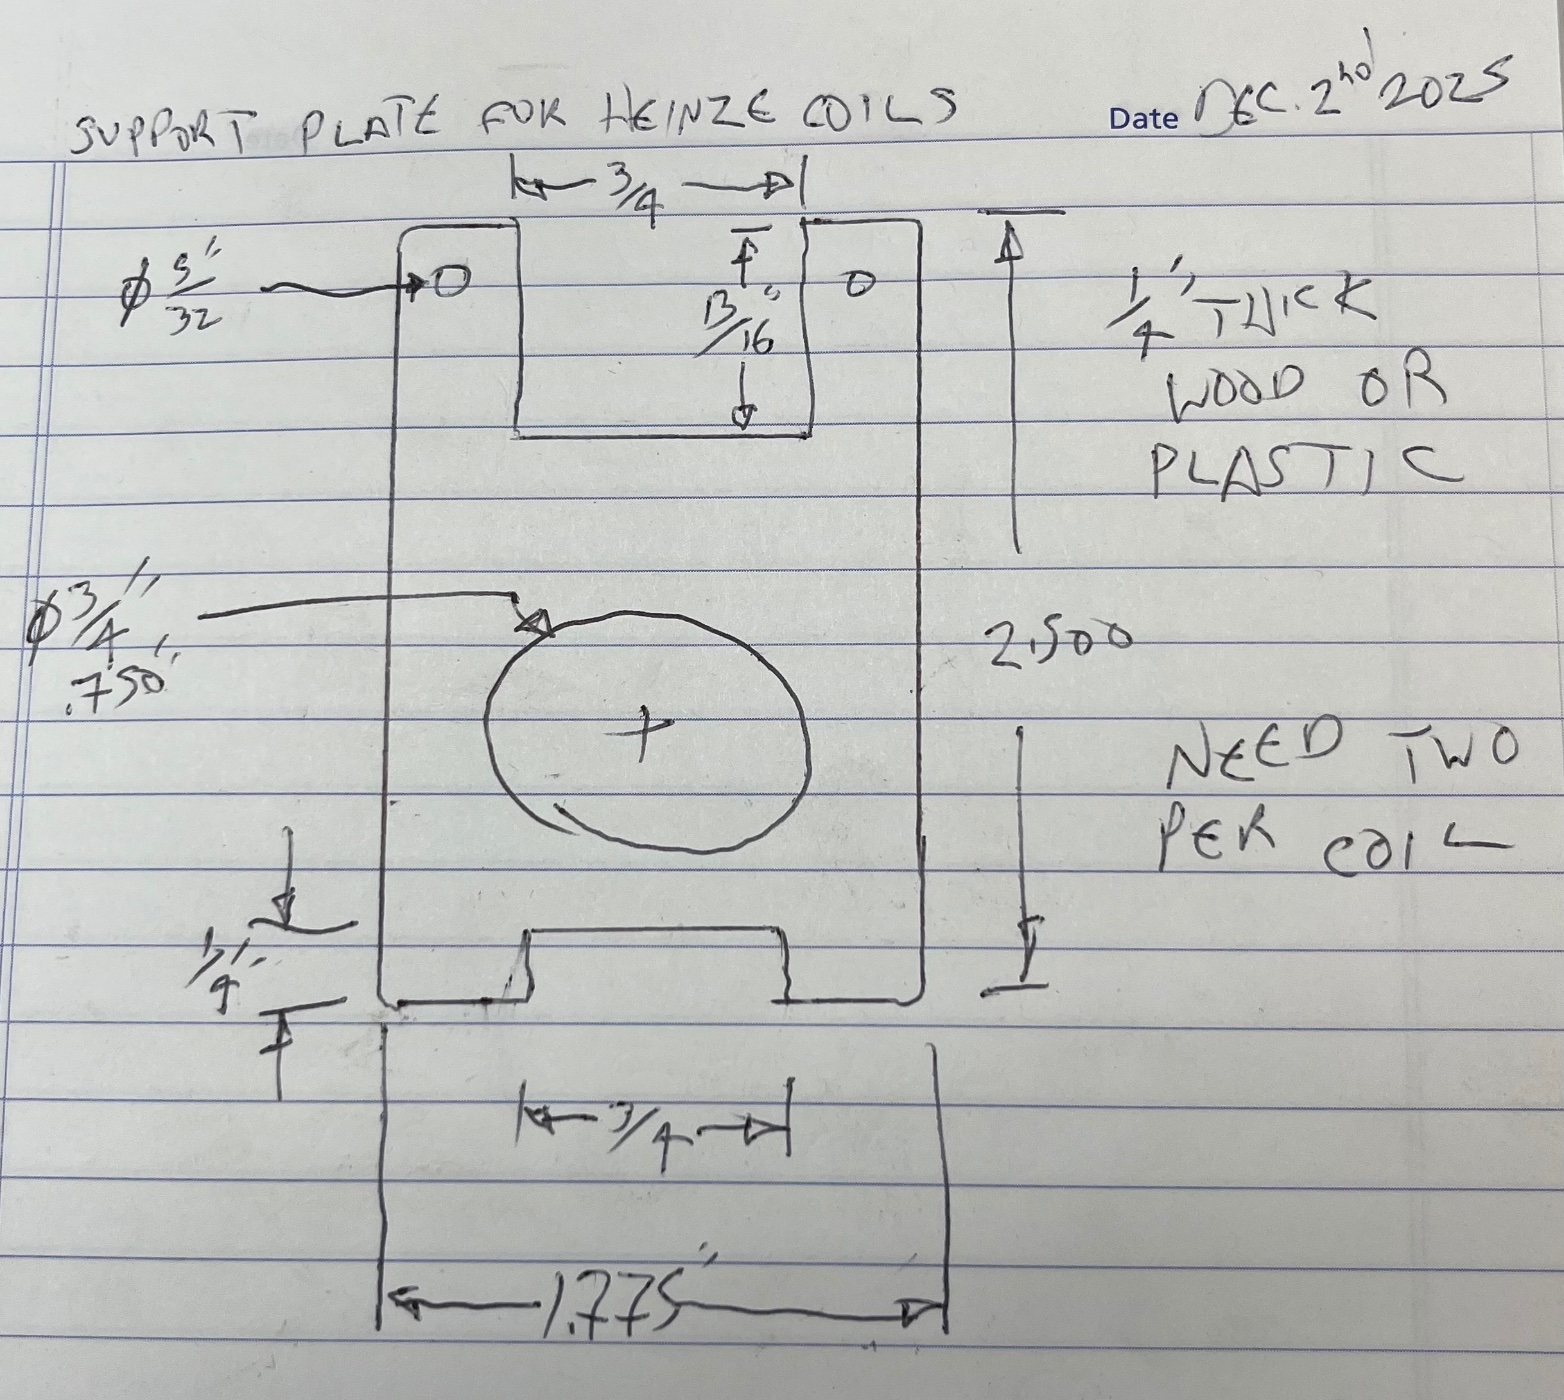 SUPPORT PLATE FOR HEINZE COILS
Date DEC. 2nd 2025
3/4
φ 5/32"
13/16"
1/4" THICK
WOOD OR
PLASTIC
φ 3/4"
.750"
2.500
NEED TWO
PER COIL
1/4"
3/4
1.775"